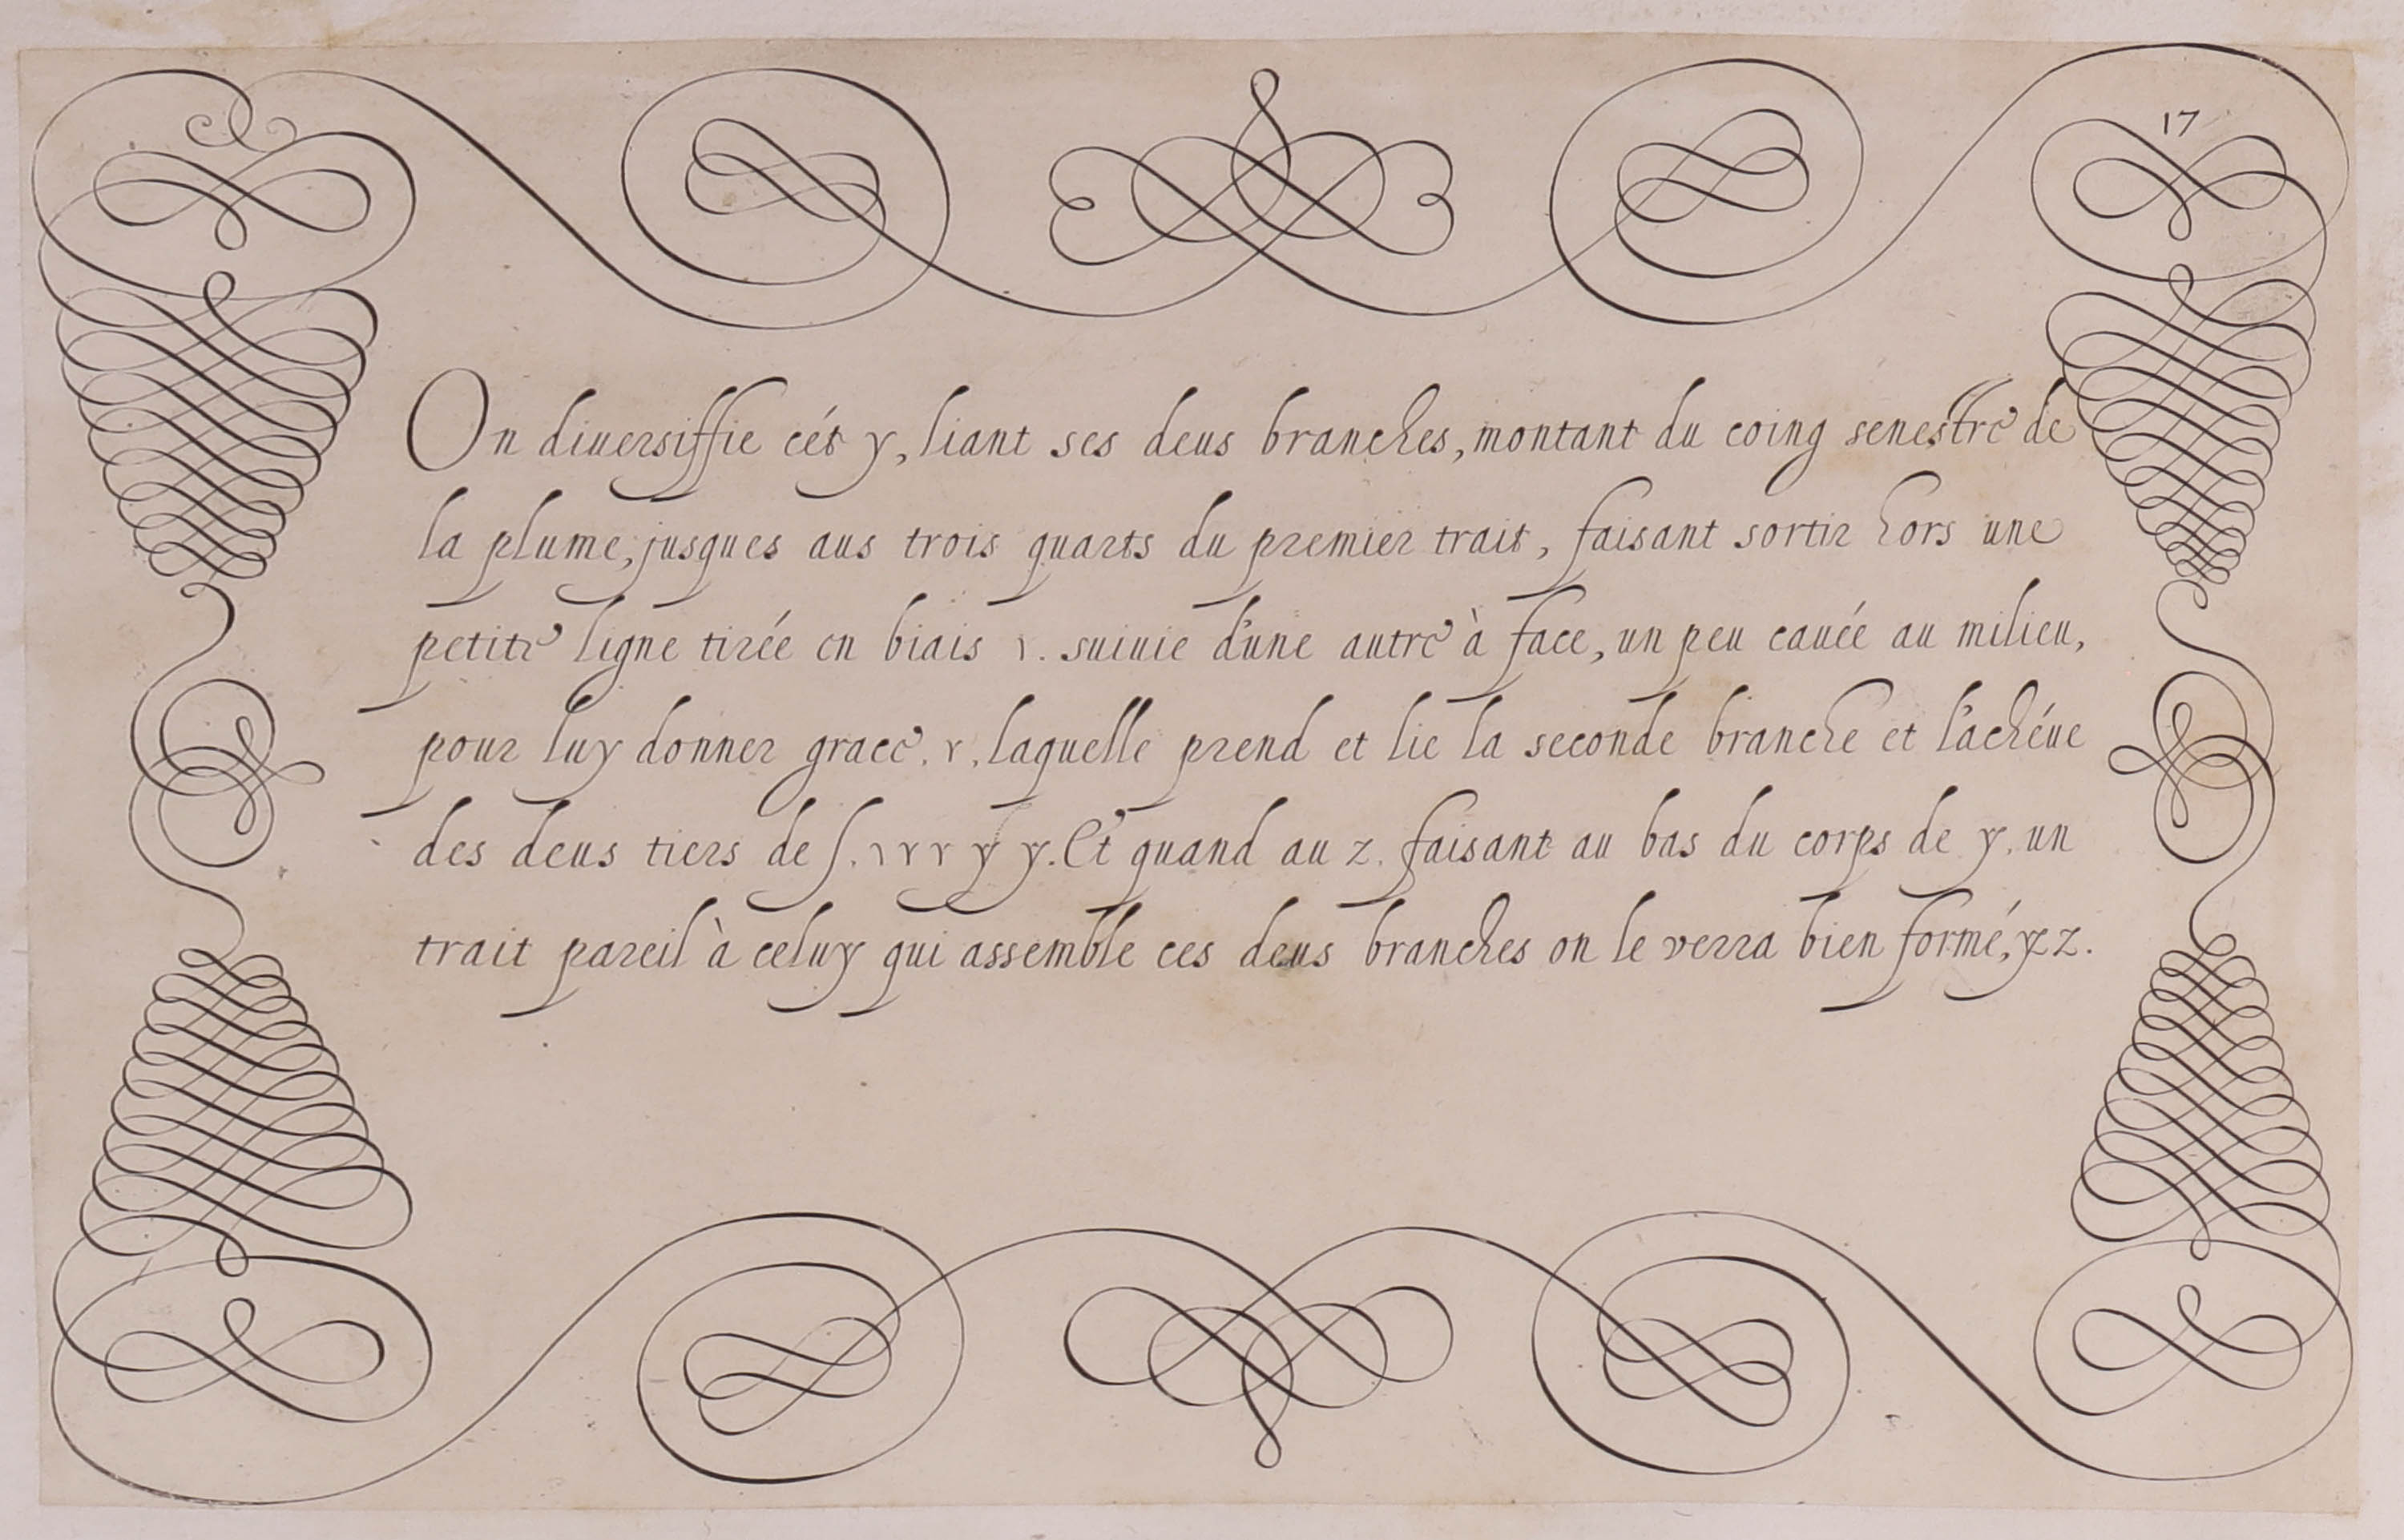 17
On diuersiffie cét y, liant ses deus branches, montant du coing senestre de
la plume, jusques aus trois quarts du premier trait, faisant sortir hors une
petite ligne tirée en biais ı. suiuie d'une autre à face, un peu cauée au milieu,
pour luy donner grace. r, laquelle prend et lie la seconde branche et l'achéue
des deus tiers de ſ. ı r r y y. Et quand au z. faisant au bas du corps de y. un
trait pareil à celuy qui assemble ces deus branches on le verra bien formé, y z.